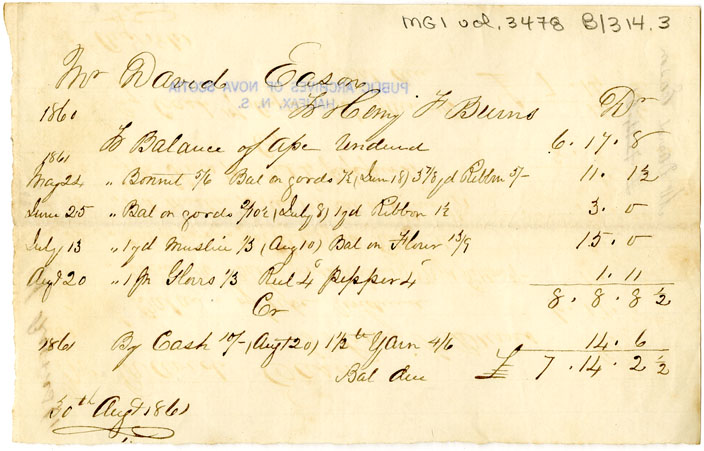 MG1 vol. 3478 B/314.3
Mr David Eason
PUBLIC ARCHIVES OF NOVA SCOTIA
HALIFAX, N. S.
1860 To Henry F Burns Dr
To Balance of a/c rendered 6. 17. 8
1861
May 24 " Bonnet 5/6 Bal on goods (June 18) 3 7/8 yd Ribbon 5/- 11. 1½
June 25 " Bal on goods 2/10½ (July 8) 1 yd Ribbon 1½ 3. 0
July 13 " 1 yd Muslin 1/3 (Aug 10) Bal on Flour 13/9 15. 0
Augt 20 " 1 pr Gloves 1/3 Reel 4" pepper 4" 1. 11
8. 8. 8½
Cr
1861 By Cash 10/- (Augt 20) 1½ lb Yarn 4/6 14. 6
Bal due £ 7. 14. 2½
30th Augt 1861